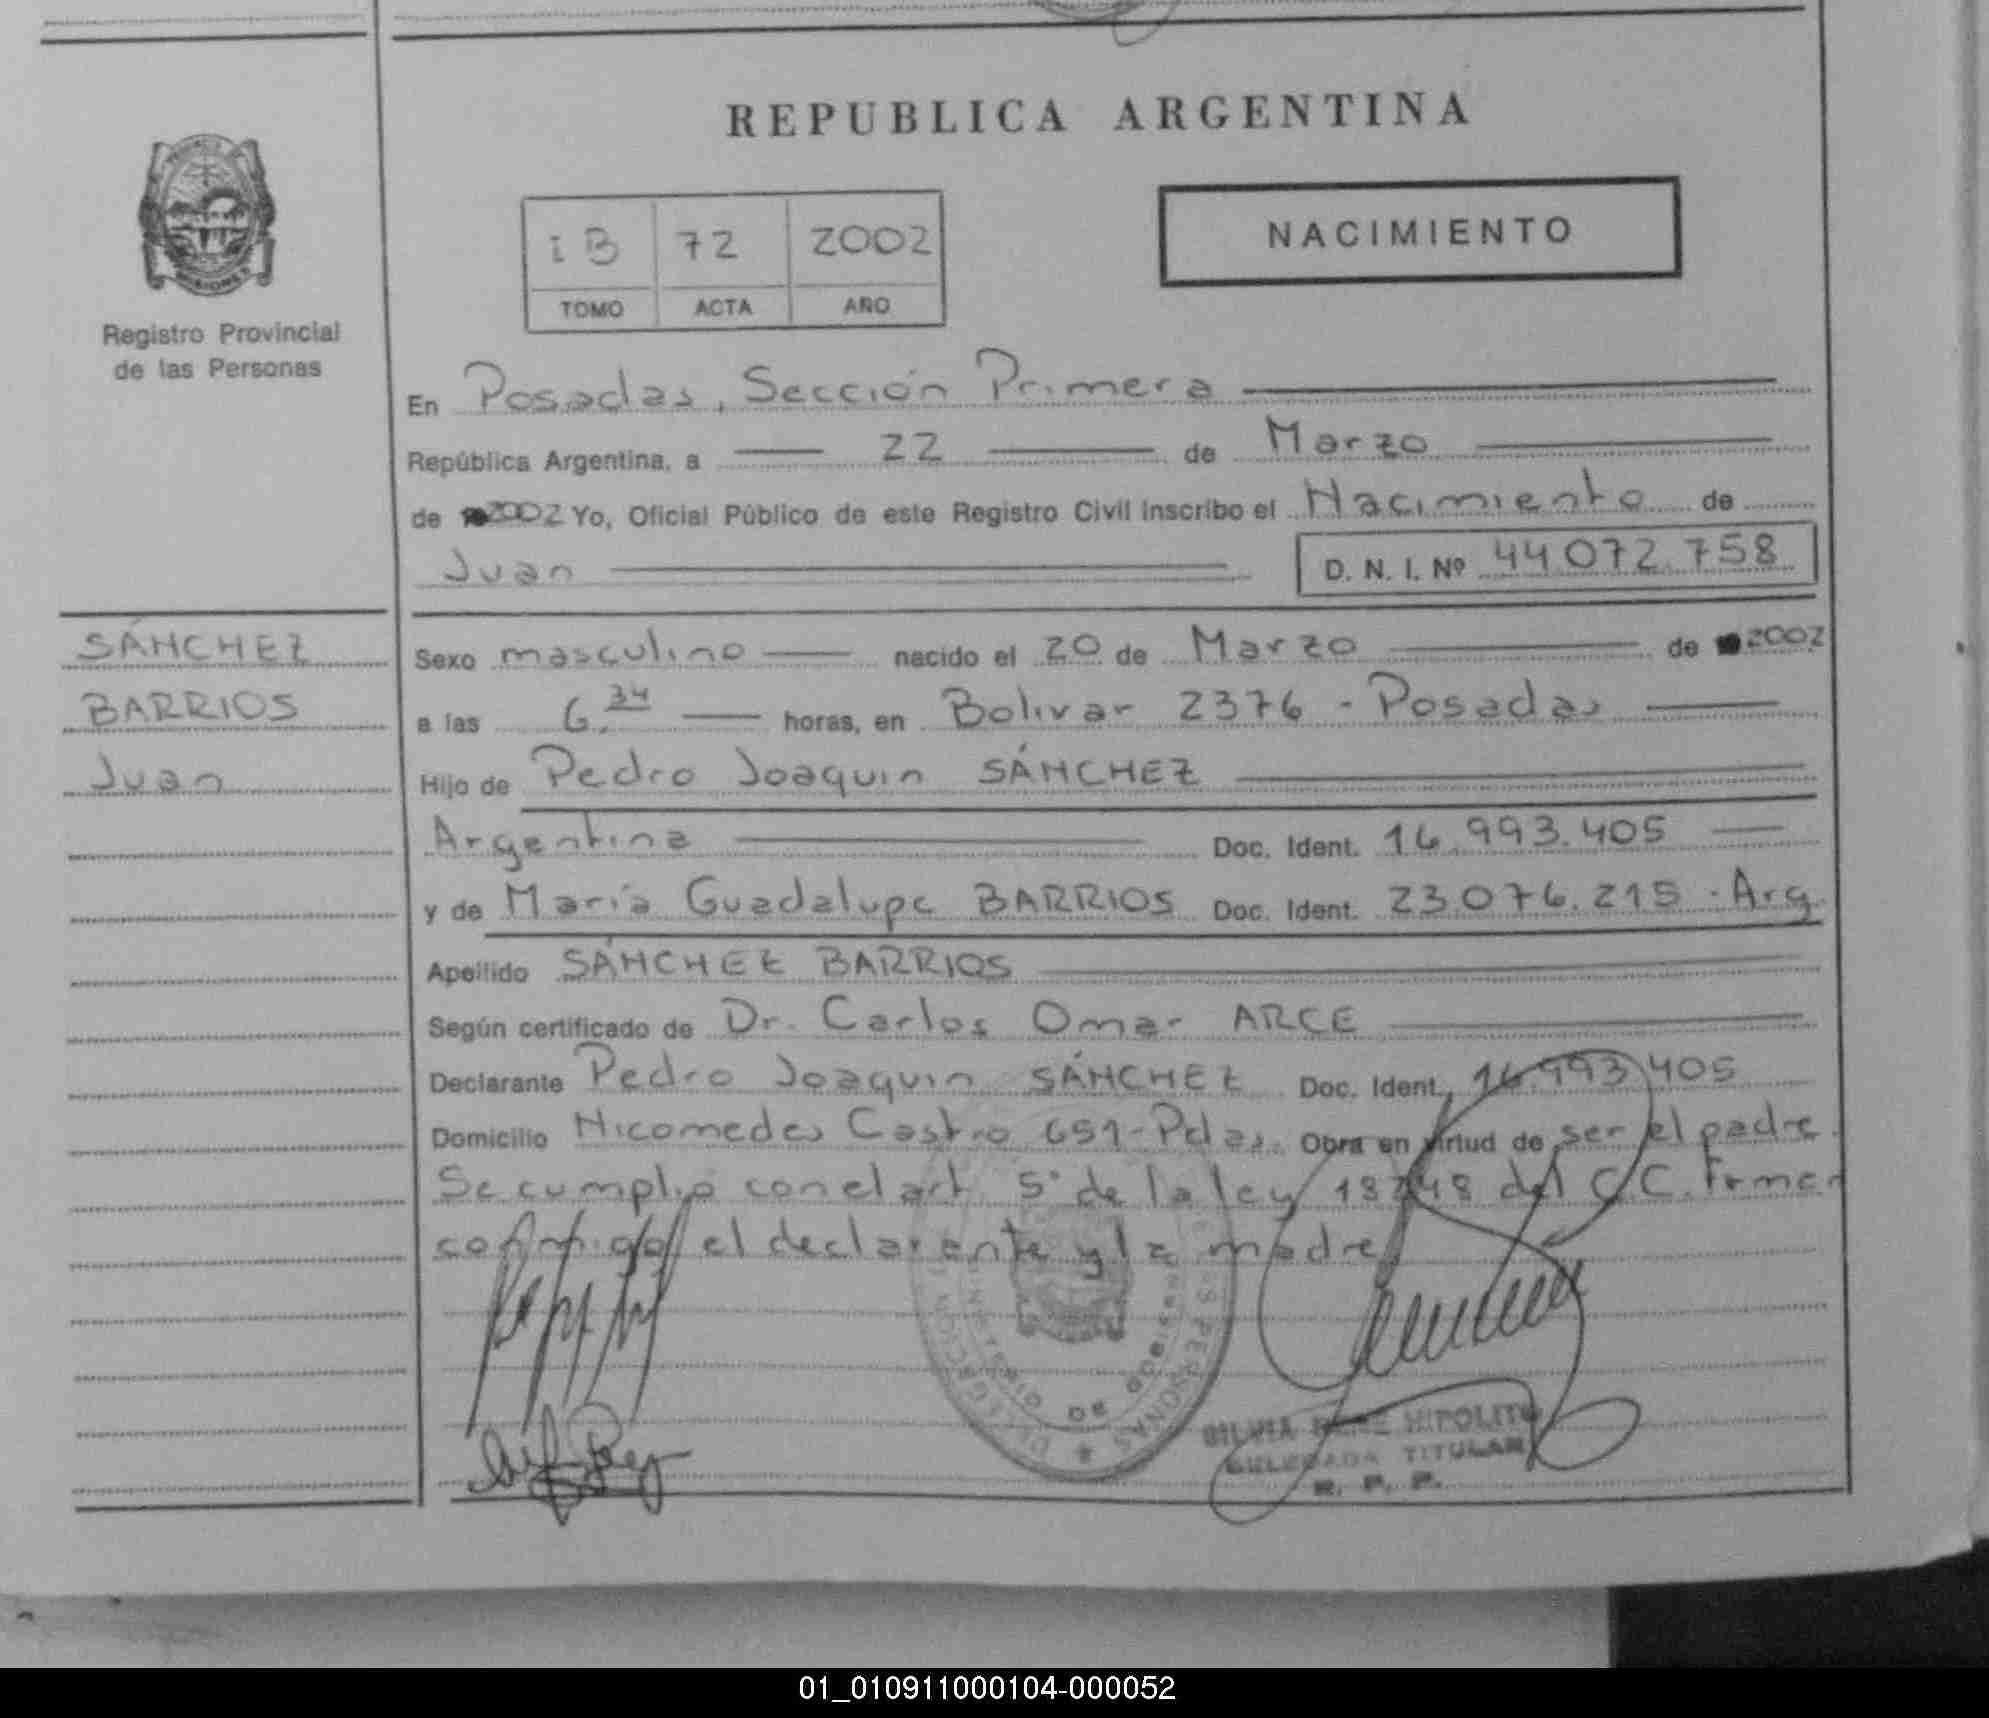 REPUBLICA ARGENTINA
NACIMIENTO
iB 72 2002
TOMO ACTA AÑO
Registro Provincial
de las Personas
En Posadas, Sección Primera
República Argentina, a 22 de Marzo
de 2002 Yo, Oficial Público de este Registro Civil inscribo el Nacimiento de
Juan D. N. I. Nº 44 072.758
SÁNCHEZ
BARRIOS
Juan
Sexo masculino nacido el 20 de Marzo de 2002
a las 6.34 horas, en Bolivar 2376 - Posadas
Hijo de Pedro Joaquin SÁNCHEZ
Argentina Doc. Ident. 16.993.405
y de María Guadalupe BARRIOS Doc. Ident. 23.076.215 - Arg.
Apellido SÁNCHEZ BARRIOS
Según certificado de Dr. Carlos Omar ARCE
Declarante Pedro Joaquin SÁNCHEZ Doc. Ident. 16.993.405
Domicilio Nicomedes Castro 651-Pdas. Obra en virtud de ser el padre.
Se cumplió con el art. 5° de la ley 18248 del C.C. Firman
conmigo el declarante y la madre
SILVIA HIPOLITO
DELEGADA TITULAR
R. P. P.
01_010911000104-000052